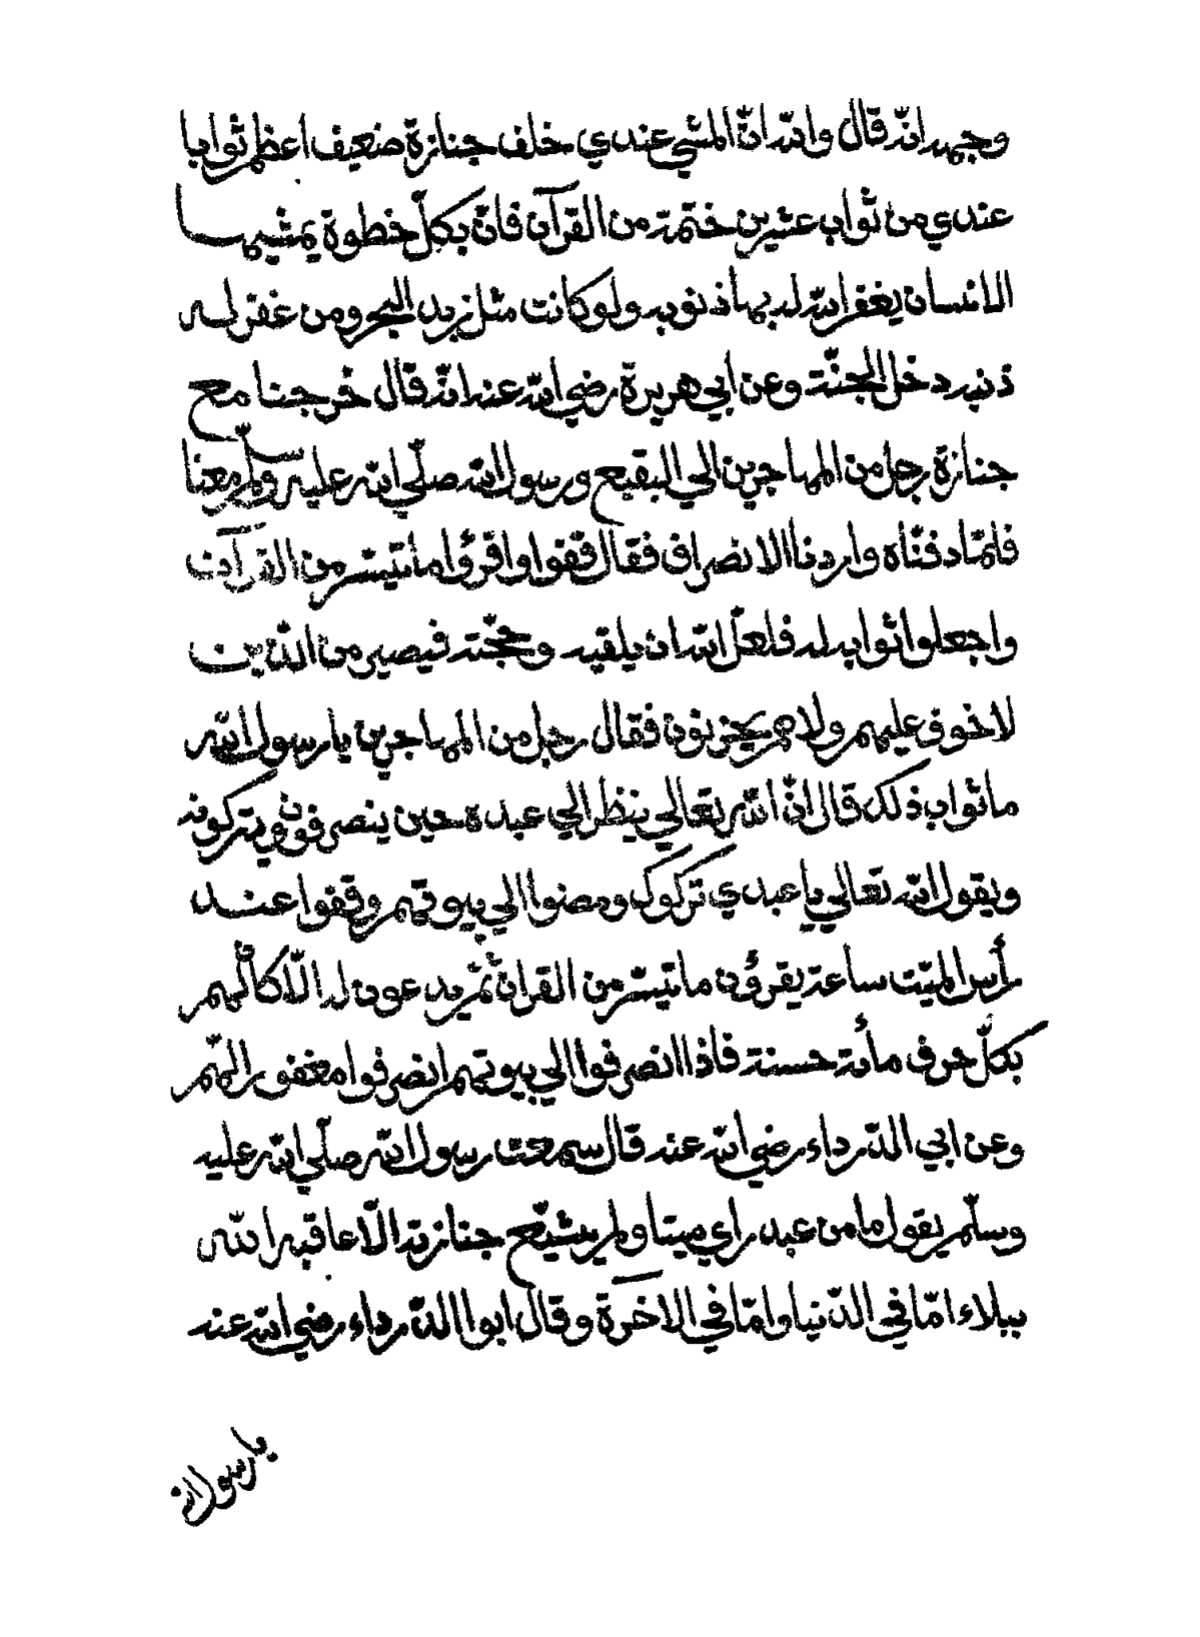 وجهه انّه قال والله انّ المشي عندي خلف جنازة ضعيف اعظم ثوابا
عندي من ثواب عشرين ختمة من القرآن فانّ بكلّ خطوة يمشيها
الانسان يغفر الله له بها ذنوبه ولو كانت مثل زبد البحر ومن غفر له
ذنبه دخل الجنّة وعن ابي هريرة رضي الله عنه انّه قال خرجنا مع
جنازة رجل من المهاجرين الي البقيع ورسول الله صلّي الله عليه وسلّم معنا
فلمّا دفنّاه واردنا الانصراف فقال قفوا واقرؤا ما تيسّر من القرآن
واجعلوا ثوابه له فلعلّ الله ان يلقيه وحجّته فيصير من الذّين
لا خوف عليهم ولا هم يحزنون فقال رجل من المهاجرين يا رسول الله
ما ثواب ذلك قال انّ الله تعالي ينظر الي عبده حين ينصرفون ويتركونه
ويقول الله تعالي يا عبدي تركوك ومضوا الي بيوتهم وقفوا عند
رأس الميّت ساعة يقرؤن ما تيسّر من القران ثمّ يدعون له الّا كأنّهم
بكلّ حرف مأئة حسنة فاذا انصرفوا الي بيوتهم انصرفوا مغفور الهّم
وعن ابي الدّرداء رضي الله عنه قال سمعت رسول الله صلّي الله عليه
وسلّم يقول ما من عبد راي ميتا ولم يشيّع جنازته الّا عاقبه الله
ببلاء امّا في الدّنيا وامّا في الاخرة وقال ابوا الدّرداء رضي الله عنه
يا رسول الله